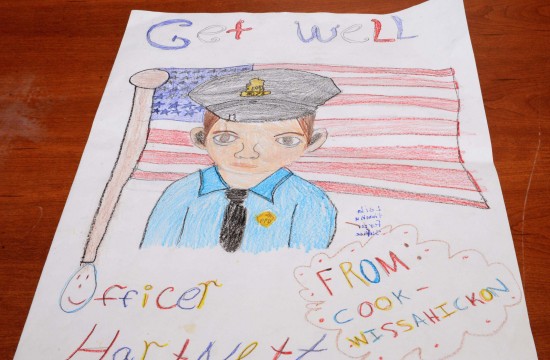 Get Well
Officer
Hartnett
FROM
COOK-
WISSAHICKON